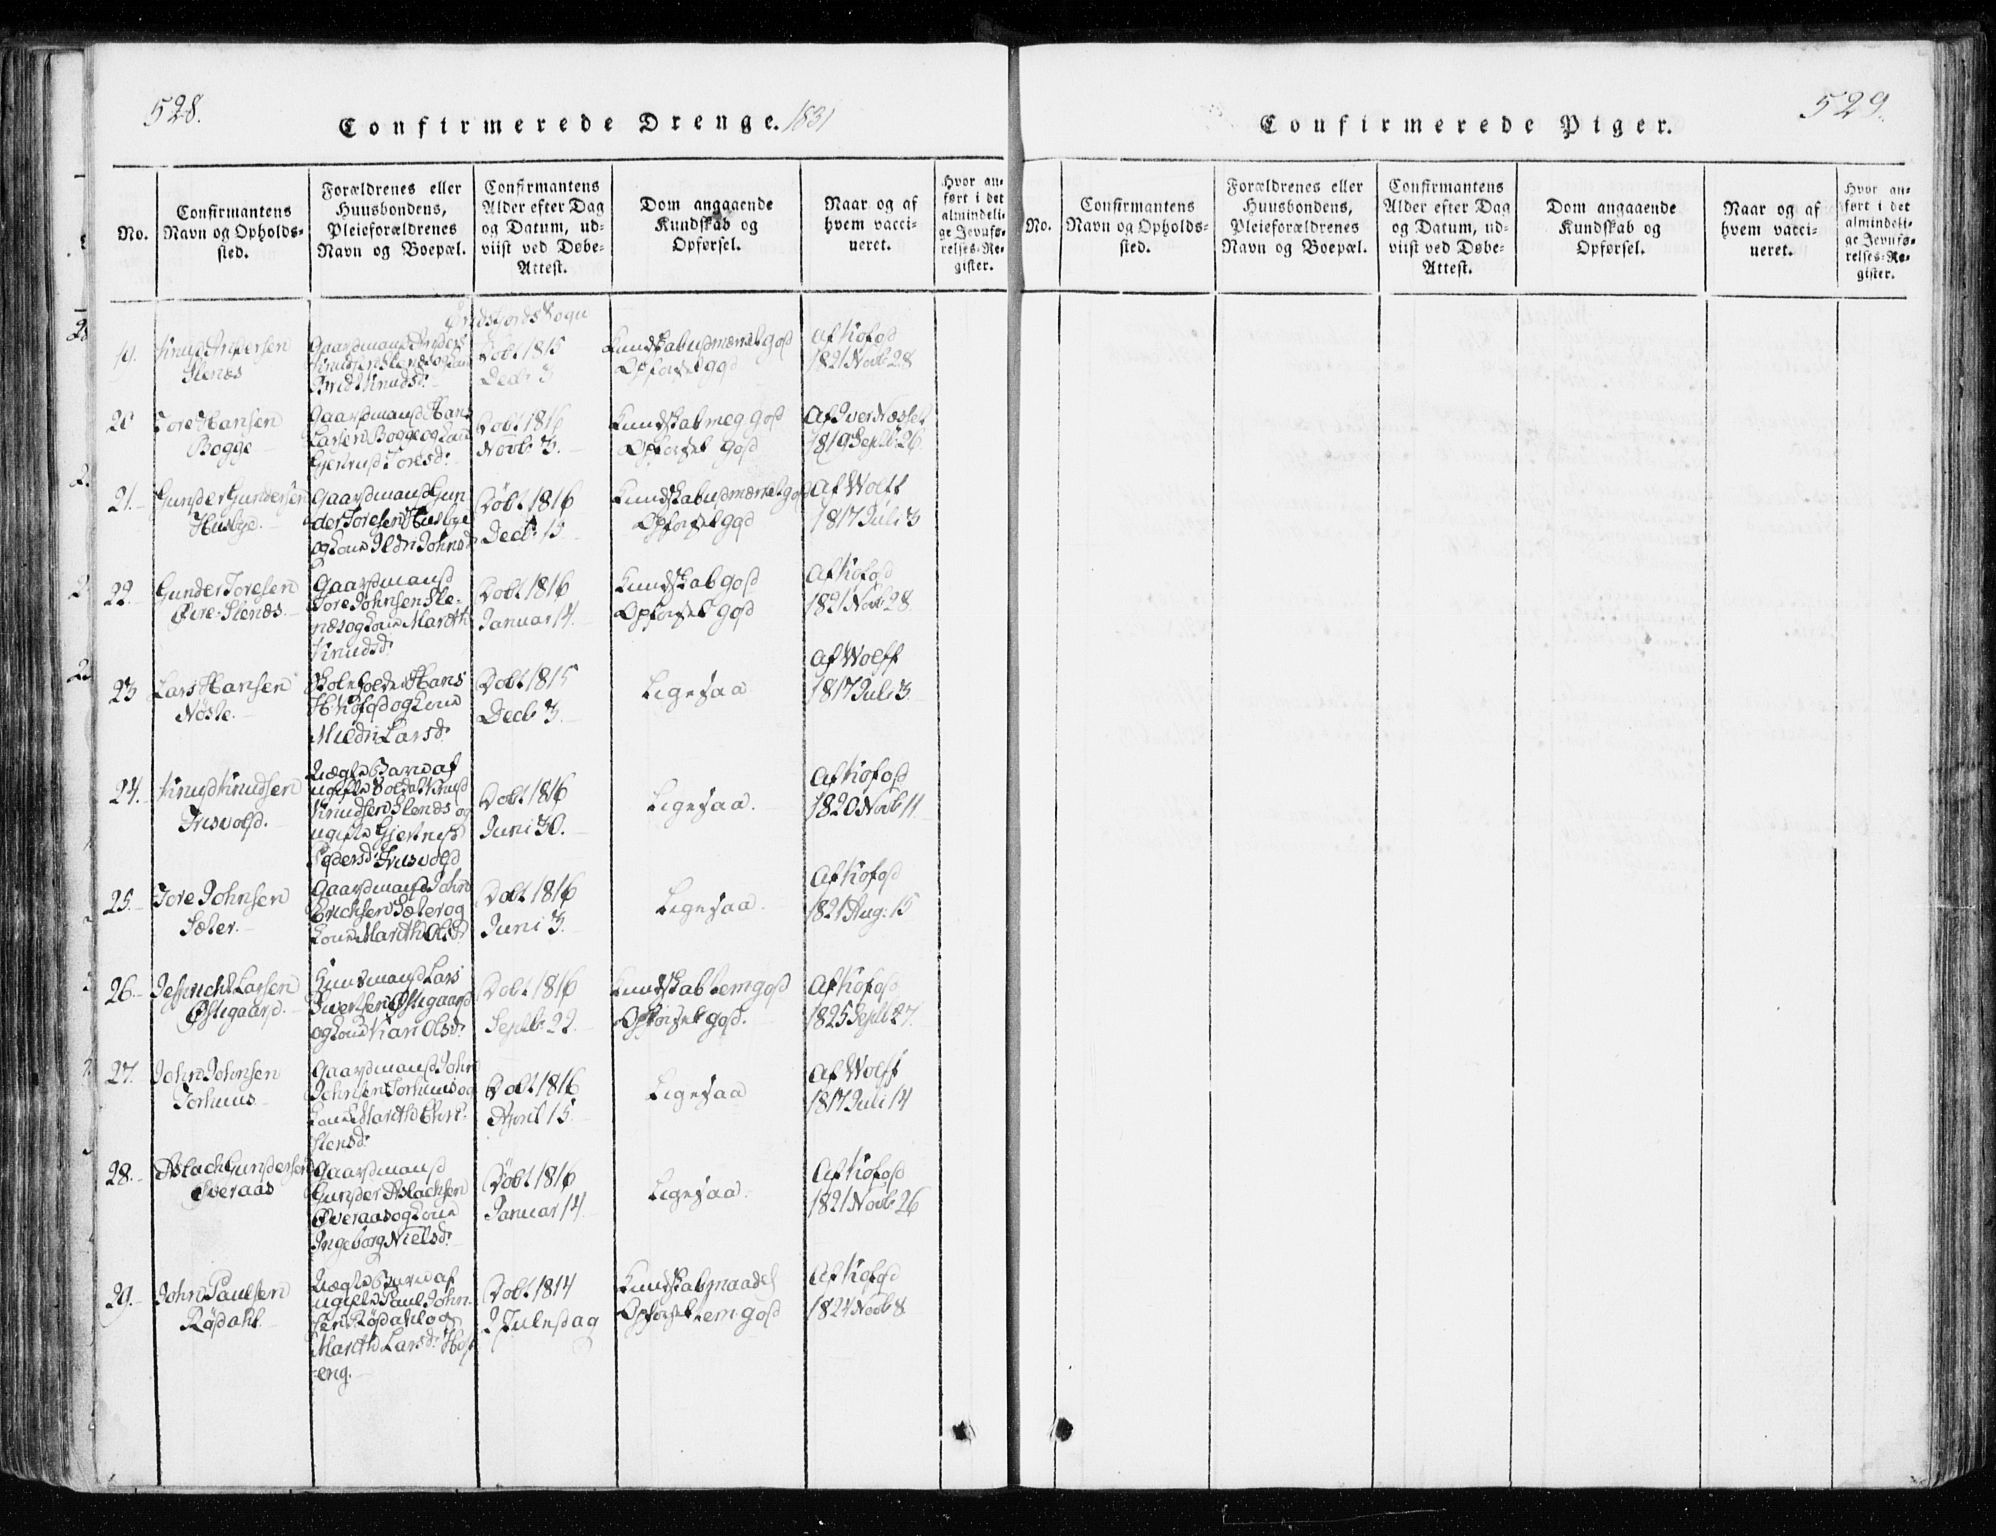 528.
Confirmerede Drenge. 1831
No.
Confirmantens
Navn og Opholds-
sted.
Forældrenes eller
Huusbondens,
Pleieforældrenes
Navn og Boepæl.
Confirmantens
Alder efter Dag
og Datum, ud-
viist ved Døbe-
Attest.
Dom angaaende
Kundskab og
Opførsel.
Naar og af
hvem vacci-
neret.
Hvor an-
ført i det
almindeli-
ge Jevnfø-
relses-Re-
gister.
Øridsfjords Sogn
19.
Knud Andersen
Slenæs
Gaardmand Anders
Knudsen Slenæs og Kone
Brit Knudsd:
Døbt 1815
Decbr 3
Kundskab udmærket god
Opførsel god
Af Kofod
1821 Novb: 28
20
Tore Hansen
Bogge
Gaardmand Hans
Larsen Bogge og Kone
Gjertrud Toresd:
Døbt 1816
Novbr 3.
Kundskab meg god
Opførsel god
Af Iver Næsset
1819 Septbr 26
21.
Gunder Gundersen
Husbye.
Gaardmand Gun
der Toresen Husbye
og Kone Ildri Johnsd
Døbt 1816
Decbr 15
Kundskab udmærket god
Opførsel god
Af Wolff
1817 Juli 3
22.
Gunder Toresen
Øvre-Slenæs.
Gaardmand
Tore Johnsen Sle-
næs og Kone Mareth
Knudsd:
Døbt 1816
Januar 14.
Kundskab god
Opførsel god
Af Kofod
1821 Novb: 28.
23
Lars Hansen
Nøste.
Skoleholder Hans
H Kofod og Kone
Mildri Larsd:
Døbt 1815
Decbr 3.
Ligesaa
Af Wolff
1817 Juli 3.
24.
Knud Knudsen
Trisvold.
Uægte Barn af
ugifte Soldat Knud
Knudsen Slenæs og
ugifte Gjertrud
Pedersd: Trisvold
Døbt 1816
Juni 30.
Ligesaa.
Af Kofod
1820 Novb: 11
25.
Tore Johnsen
Sæter.
Gaardmand John
Erichsen Sæter og
Kone Mareth Olsd:
Døbt 1816
Juni 3.
Ligesaa.
Af Kofod
1821 Aug: 15
26.
Larsen
Østigaard.
Huusmand Lars
Iversen Østigaard
og Kone Kari Olsd:
Døbt 1816
Septbr 22.
Kundskab temgod
Opførsel god.
Af Kofod
1825 Septbr 27.
27.
John Johnsen
Torhuus
Gaardmand John
Johnsen Torhuus og
Kone Mareth Chri-
stensd:
Døbt 1816
April 15.
Ligesaa
Af Wolff
1817 Juli 14
28.
Aslach Gundersen
Øveraas
Gaardmand
Gunder Aslachsen
Øveraas og Kone
Ingeborg Nielsd:
Døbt 1816
Januar 14.
Ligesaa.
Af Kofod
1821 Novbr 26
29.
John Paulsen
Rødahl.
Uægte Barn af
ugifte Paul John-
sen Rødahl og
Mareth Larsd:
eng.
Døbt 1814
2 Juledag
Kundskab maadel
Opførsel temgod
Af Kofod
1824 Novb 8
529.
Confirmerede Piger.
No.
Confirmantens
Navn og Opholds-
sted.
Forældrenes eller
Huusbondens,
Pleieforældrenes
Navn og Boepæl.
Confirmantens
Alder efter Dag
og Datum, ud-
viist ved Døbe-
Attest.
Dom angaaende
Kundskab og
Opførsel.
Naar og af
hvem vacci-
neret.
Hvor an-
ført i det
almindeli-
ge Jevnfø-
relses-Re-
gister.